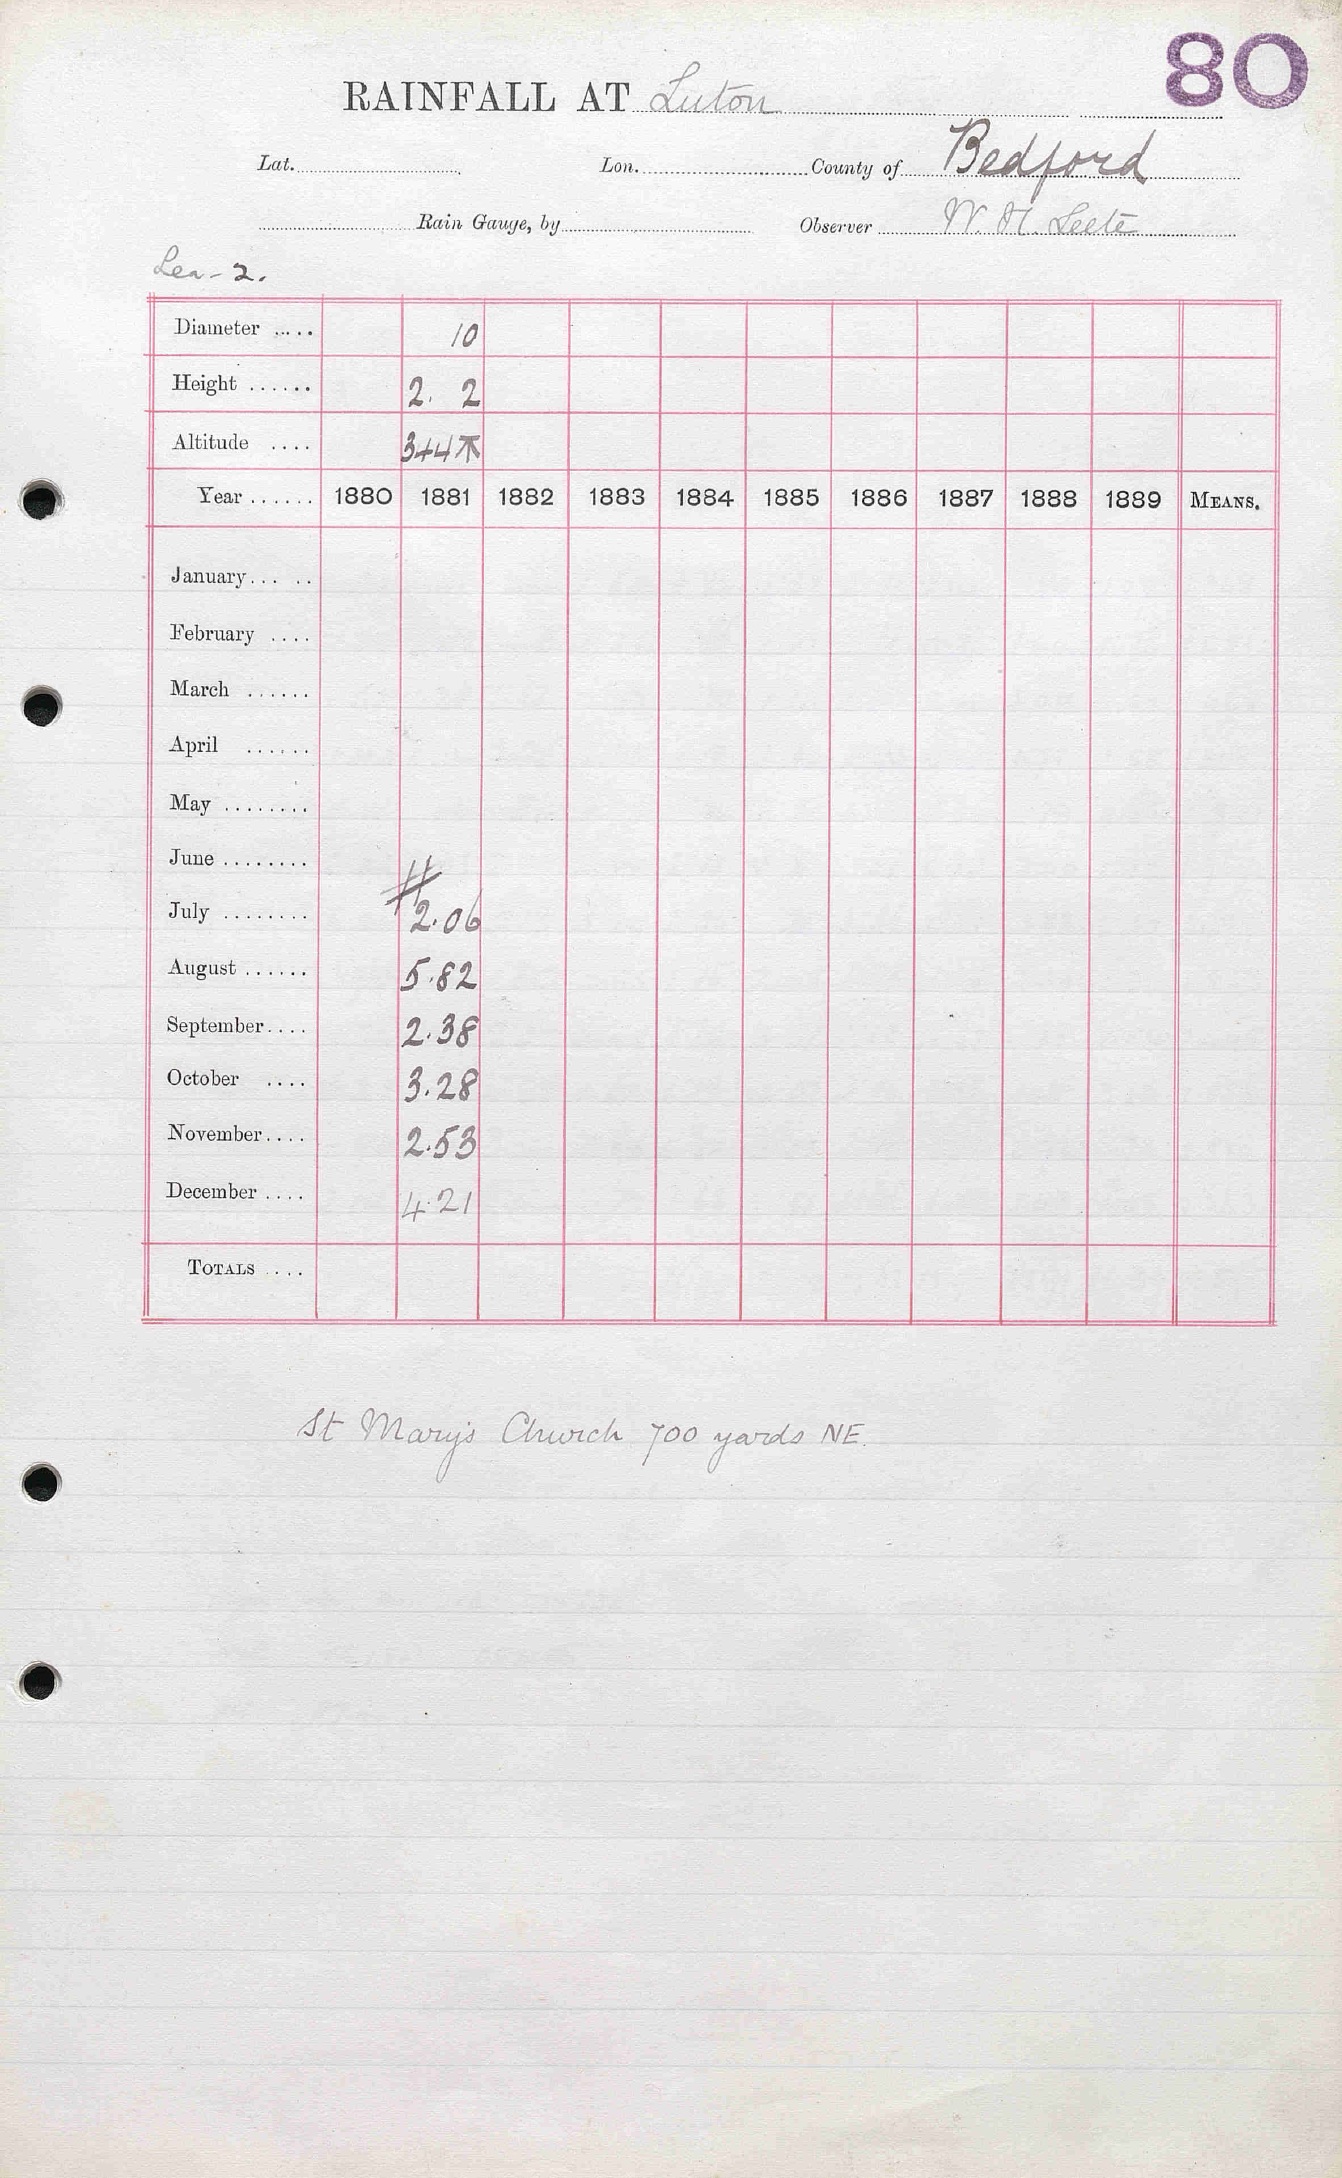 80
RAINFALL AT Luton
Lat. Lon. County of Bedford
Rain Gauge, by Observer W. H. Leete
Lea - 2.
Diameter ..... 10
Height ...... 2. 2
Altitude .... 344
Year ...... 1880 1881 1882 1883 1884 1885 1886 1887 1888 1889 MEANS.
January... ..
February ....
March ......
April ......
May ........
June ........
#
July ........ 2.06
August ...... 5.82
September.... 2.38
October .... 3.28
November.... 2.53
December .... 4.21
TOTALS ....
St Mary's Church 700 yards NE.